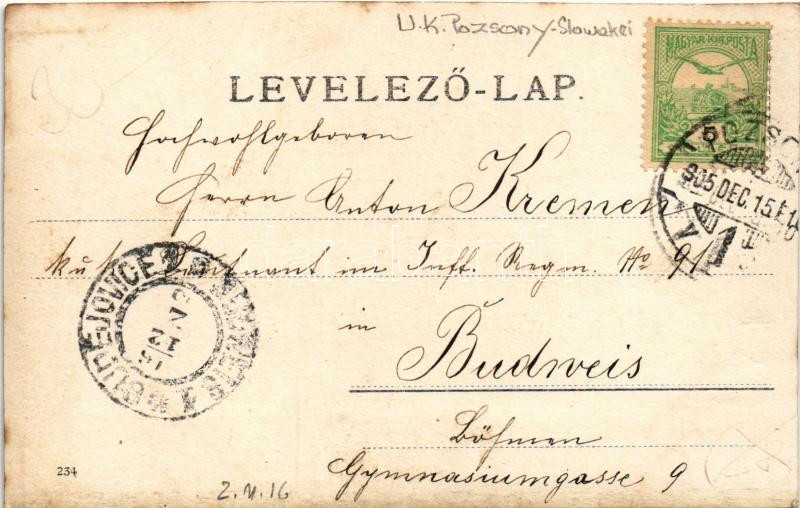 U.K. Pozsony-Slowakei
MAGYAR KIR. POSTA
5
LEVELEZŐ-LAP.
Hochwohlgeboren
Herrn Anton Kremen
k.u.k. Leutnant im Inft. Regm. No 91
in
Budweis
Böhmen
Gymnasiumgasse 9
905 DEC. 15
BUDĚJOVICE
BUDWEIS
234
30